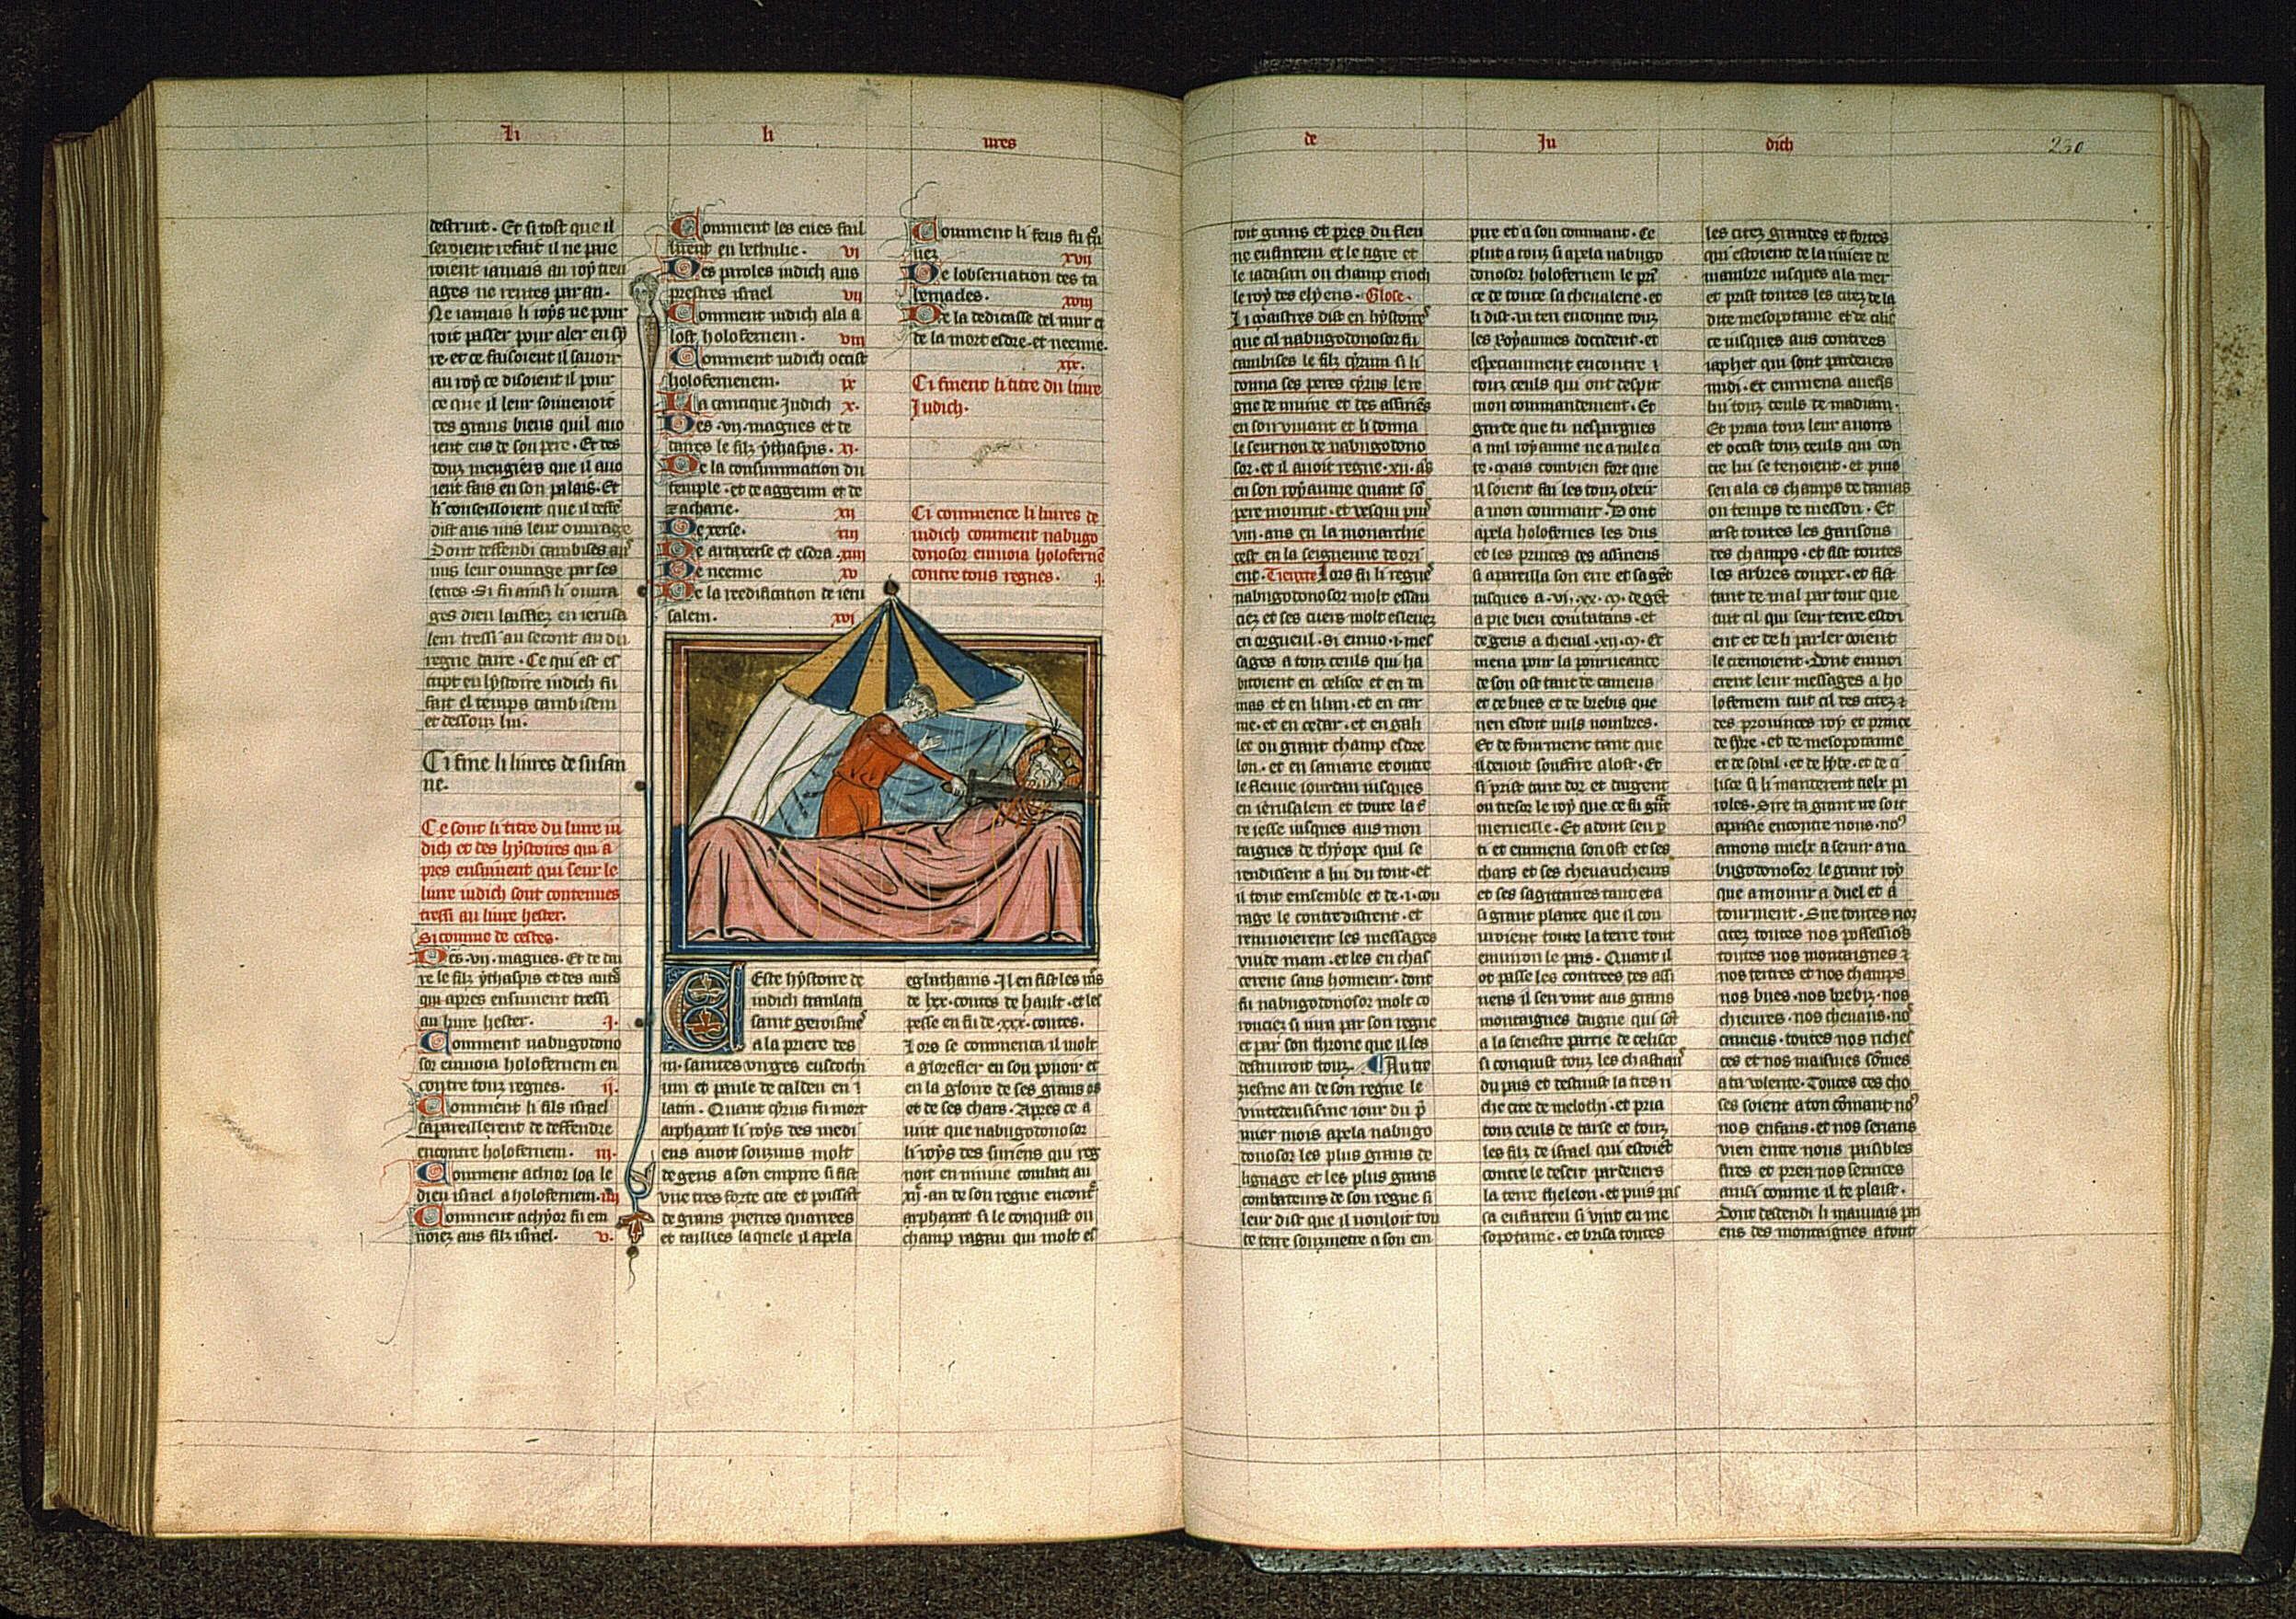 Li
li
ures
destruit. Et si tost que il
seroient refait il ne paie
roient iamais au roy treu
ages ne rentes par an.
Ne iamais li roys ne pour
roit passer pour aler en sy
re. et ce faisoient il sauoir
au roy ce disoient il pour
ce que il leur souuenoit
des grans biens quil auo
ient eus de son pere. Et des
douz mengiers que il auo
ient fais en son palais. Et
li conseilloient que il deffe
dist aus iuis leur ouurage
Dont deffendi cambises aus
iuis leur ouurage par ses
letres. Si fu ainsi li ouura
ges dieu laissiez en ierusa
lem tressi au secont an du
regne daire. Ce qui est es
cript en lystoire iudich fu
fait el temps cambisem
et dessouz lui.
Ci fine li liures de susan
ne.
Ce sont li titre du liure iu
dich et des hystoires qui a
pres ensiuient qui seur le
liure iudich sont contenues
tressi au liure hester.
Si comme de cestes.
Des .vii. magues. Et de dai
re le filz ythaspis et des autres
qui apres ensiuient tressi
au liure hester. .i.
Comment nabugodono
sor enuoia holofernem en
contre touz regnes. ii.
Comment li fils israel
sapareillerent de deffendre
encontre holofernem. iii.
Comment achior loa le
dieu israel a holofernem. iiii
Comment achyor fu en
uoiez aus filz israel. v.
Comment les eues fail
lirent en bethulie. vi
Des paroles iudich aus
prestres israel vii
Comment iudich ala a
lost holofernem. viii
Comment iudich occist
holofernenem. ix
La cantique Judich x.
Des .vii. magues et de
daires le filz ythaspis. xi.
De la consummation du
temple. et de aggeum et de
zacharie. xii
De xerse. xiii
De artaxerse et esdra. xiiii
De neemie xv
De la reedification de ieru
salem. xvi
Ceste hystoire de
iudich tranlata
saint geroismes
a la priere des
.ii. saintes uirges eustochi
um et paule de caldeu en i
latin. Quant cyrus fu mort
arphaxat li roys des medi
ens auoit souzmis molt
de gens a son empire si fist
vne tres forte cite et poissant
de grans pierres quarrees
et taillies la quele il apela
Comment li feus fu
xvii
De lobseruation des ta
bernacles. xviii
De la dedicasse del mur et
de la mort esdre. et neemie.
xix.
Ci finent li titre du liure
Judich.
Ci commence li liures de
iudich comment nabugo
donosor enuoia holoferne
contre tous regnes. .i.
egbathanis. Il en fist les murs
de lxx. coutes de hault. et les
pesse en fu de xxx. coutes.
Lors se commenca il molt
a glorefier en son pouoir et
en la gloire de ses grans os
et de ses chars. Apres ce a
uint que nabugodonosor
li roys des siriens qui reg
noit en niniue combati au
xii. an de son regne encontre
arphaxat si le conquist ou
champ ragau qui molt es
de
Ju
dich
230
toit grans et pres du fleu
ue eufratem et le tigre et
le iadasan ou champ erioch
le roy des elyens. Glose.
Li maistres dist en hystoires
que cil nabugodonosor fu
cambises le filz cyrum si li
donna ses peres cyrus le re
gne de niniue et des assiriens
en son viuant et li donna
le seurnon de nabugodono
sor. et il auoit regne .xii. ans
en son royaume quant son
pere mourut. et vesqui puis
viii. ans en la monarchie
cest en la seigneurie de ori
ent. Tieuxte Lors fu li regnes
nabugodonosor molt essau
ciez et ses cuers molt esleuez
en orgueul. si enuoia .i. mes
sages a touz ceuls qui ha
bitoient en celisce et en da
mas et en liban. et en car
me. et en cedar. et en gali
lee ou grant champ esdre
lon. et en samarie et outre
le fleuue iourdan iusques
en ierusalem et toute la ter
re iesse iusques aus mon
taignes de thyope quil se
rendissent a lui du tout. et
il tout ensemble et de .i. cou
rage le contredistrent. et
renuoierent les messages
vuide main. et les en chas
cerent sans honneur. dont
fu nabugodonosor molt co
rouciez si iura par son regne
et par son throne que il les
destruiroit touz. Ou tre
ziesme an de son regne le
vintedeusisme iour du pre
mier mois apela nabugo
donosor les plus grans de
lignage et les plus grans
combateurs de son regne si
leur dist que il uouloit tou
te terre souzmetre a son em
pire et a son commant. Ce
plut a touz si apela nabugo
donosor holofernem le prin
ce de toute sa cheualerie. et
li dist. ua ten encontre touz
les Royaumes doccident. et
especiaument encontre
touz ceuls qui ont despit
mon commandement. Et
garde que tu nespargnes
a nul royaume ne a nule ci
te. Mais combien fort que
il soient fai les touz obeir
a mon commant. Dont
apela holofernes les dus
et les princes des assiriens
si apareilla son erre et sa gent
iusques a .vi. xx. M. de gent
a pie bien combatans. et
de gens a cheual .xii. M. Et
mena pour la pourueance
de son ost tant de cameus
et de bues et de brebis que
nen estoit nuls nombres.
Et de fourment tant que
il deuoit souffire a lost. Et
si prist tant dor et dargent
ou tresor le roy que ce fu grant
merueille. Et adont sen par
ti et enmena son ost et ses
chars et ses cheuaucheurs
et ses sagittaires tant et a
si grant plante que il cou
uroient toute la terre tout
enuiron le pais. Quant il
ot passe les contrees des assi
riens il sen vint aus grans
montaignes daigne qui sont
a la senestre partie de celisce
si conquist touz les chastiaus
du pais et destruist la tres ri
che cite de melothi. et pria
touz ceuls de tarse et touz
les filz de israel qui estoient
contre le desert par deuers
la terre cheleon. et puis pas
sa eufratem si vint en me
sopotamie. et brisa toutes
les citez grandes et fortes
qui estoient de la riuiere de
mambre iusques a la mer
et prist toutes les citez de la
dite mesopotamie et de cilice
ce iusques aus contrees
iaphet qui sont pardeuers
midi. Et enmena auecqs
lui touz ceuls de madian.
Et praia touz leur auoirs
et occist touz ceuls qui con
tre lui se tenoient. et puis
sen ala es champs de damas
ou temps de messon. Et
arst toutes les garisons
des champs. et fist toutes
les arbres couper. et fist
tant de mal par tout que
tuit cil qui seur terre estoi
ent et de li parler ooient
le cremoient. Dont enuoi
erent leur messages a ho
lofernem tuit cil des citez et
des prouinces roy et prince
de syre. et de mesopotamie
et de sobal. et de lybe. et de ci
lisce si li manderent tielx pa
roles. Sire ta grant ire soit
apaisie encontre nous. nous
amons mielx a seruir a na
bugodonosor le grant roy
que a mourir a duel et a
tourment. Sire toutes nos
citez toutes nos possessions
toutes nos montaignes et
nos tertres et nos champs
nos bues. nos brebiz. nos
chieures. nos cheuaus. nos
cameus. toutes nos riches
ces et nos maisnies sommes
a ta volente. Toutes ces cho
ses soient a ton commant nous
nos enfans. et nos serians
vien entre nous paisibles
sires et pren nos seruices
ainsi comme il te plaist.
Dont descendi li mauuais pai
ens des montaignes a tout